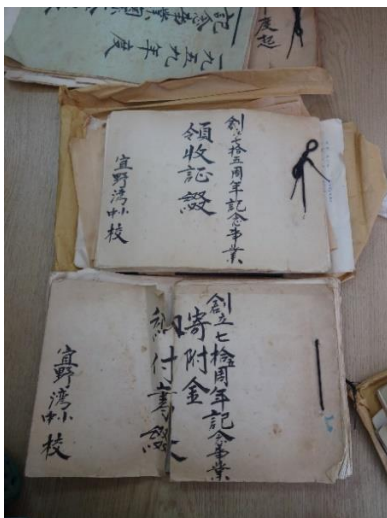 一九五九年度
記念事業
度起
創立七拾五周年記念事業
領收証綴
宜野湾小中校
創立七拾五周年記念事業
寄附金
付書綴
宜野湾小中校